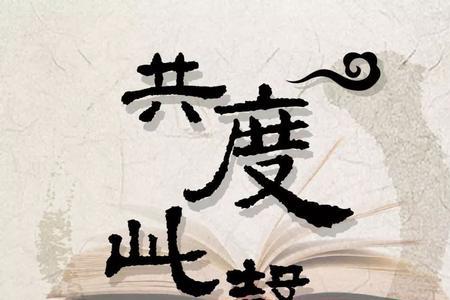 共度
此